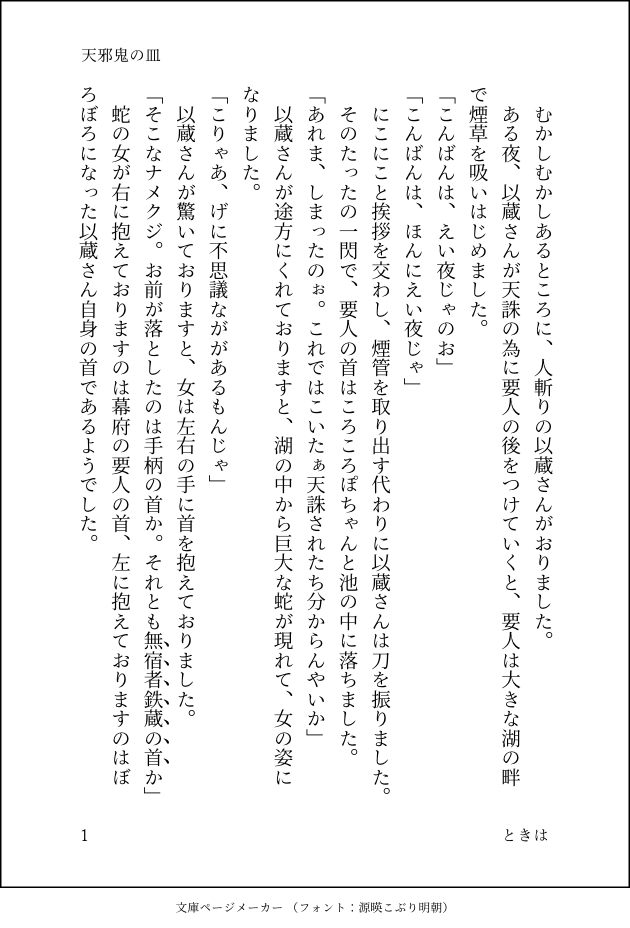 天邪鬼の皿
　むかしむかしあるところに、人斬りの以蔵さんがおりました。
　ある夜、以蔵さんが天誅の為に要人の後をつけていくと、要人は大きな湖の畔
で煙草を吸いはじめました。
「こんばんは、えい夜じゃのお」
「こんばんは、ほんにえい夜じゃ」
　にこにこと挨拶を交わし、煙管を取り出す代わりに以蔵さんは刀を振りました。
　そのたったの一閃で、要人の首はころころぽちゃんと池の中に落ちました。
「あれま、しまったのぉ。これではこいたぁ天誅されたち分からんやいか」
　以蔵さんが途方にくれておりますと、湖の中から巨大な蛇が現れて、女の姿に
なりました。
「こりゃあ、げに不思議なががあるもんじゃ」
　以蔵さんが驚いておりますと、女は左右の手に首を抱えておりました。
「そこなナメクジ。お前が落としたのは手柄の首か。それとも無宿者鉄蔵の首か」
　蛇の女が右に抱えておりますのは幕府の要人の首、左に抱えておりますのはぼ
ろぼろになった以蔵さん自身の首であるようでした。
ときは
1
文庫ページメーカー（フォント：源暎こぶり明朝）